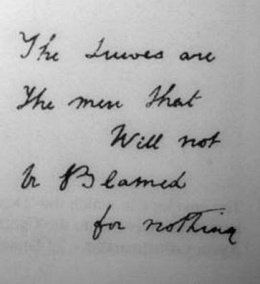 The Juwes are
the men that
Will not
be Blamed
for nothing